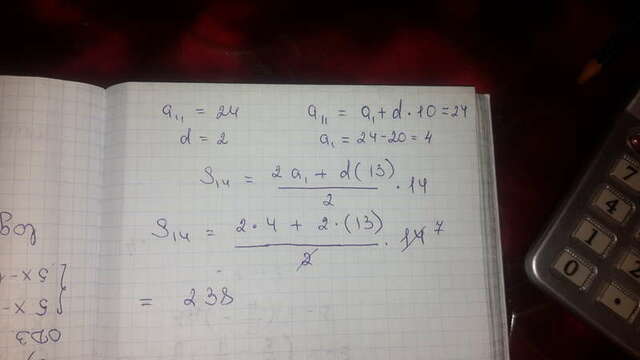 a₁₁ = 24    a₁₁ = a₁ + d · 10 = 24
d = 2    a₁ = 24 - 20 = 4
S₁₄ = (2a₁ + d(13))/2 · 14
S₁₄ = (2 · 4 + 2 · (13))/2 · 14 7
= 238
log
5x -
5x -
ОДЗ
7
4
1
2
0
.